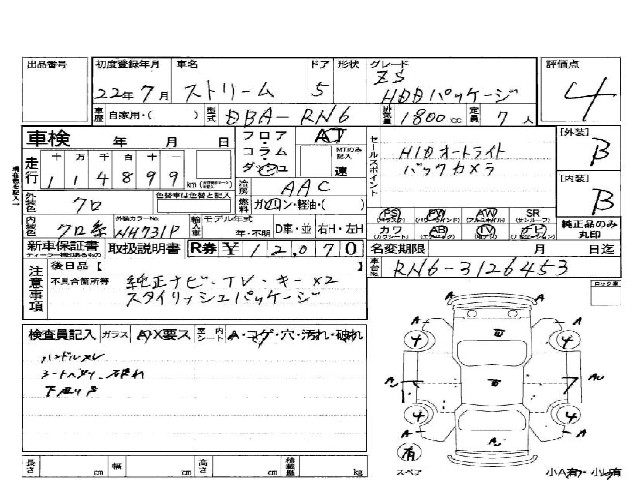 出品番号 初度登録年月 車名 ドア 形状 グレード 評価点
22年7月 ストリーム 5 ZS HDDパッケージ 4
車歴 自家用・( ) 型式 DBA-RN6 排気量 1800cc 定員 7人
車検 年 月 日 フロア・コラム・ダッシュ AT MTのみ記入 速 セールスポイント HIDオートライト [外装] B
走行 十万千百十一 114899 km バックカメラ
外装色 クロ 色替車は色替と記入 冷房 AAC 燃料 ガソリン・軽油・( ) [内装] B
PS PW AW SR
内装色 クロ系 外装カラーNo. NH731P 輸入車 モデル年式 年・不明 D車・並 右H・左H カワ AB TV ナビ 純正品のみ丸印
新車保証書 取扱説明書 R券 ¥12,070 名変期限 月 日迄
注意事項 後日品【 】 車台No. RN6-3126453
不具合箇所等 純正ナビ・TV・キー×2
スタイリッシュパッケージ
検査員記入 ガラス A)X要ス 室内シート A・コゲ・穴・汚れ・破れ
ハンドルスレ
下廻りサ
長さ cm 幅 cm 高さ cm 積載量 kg
スペア 有